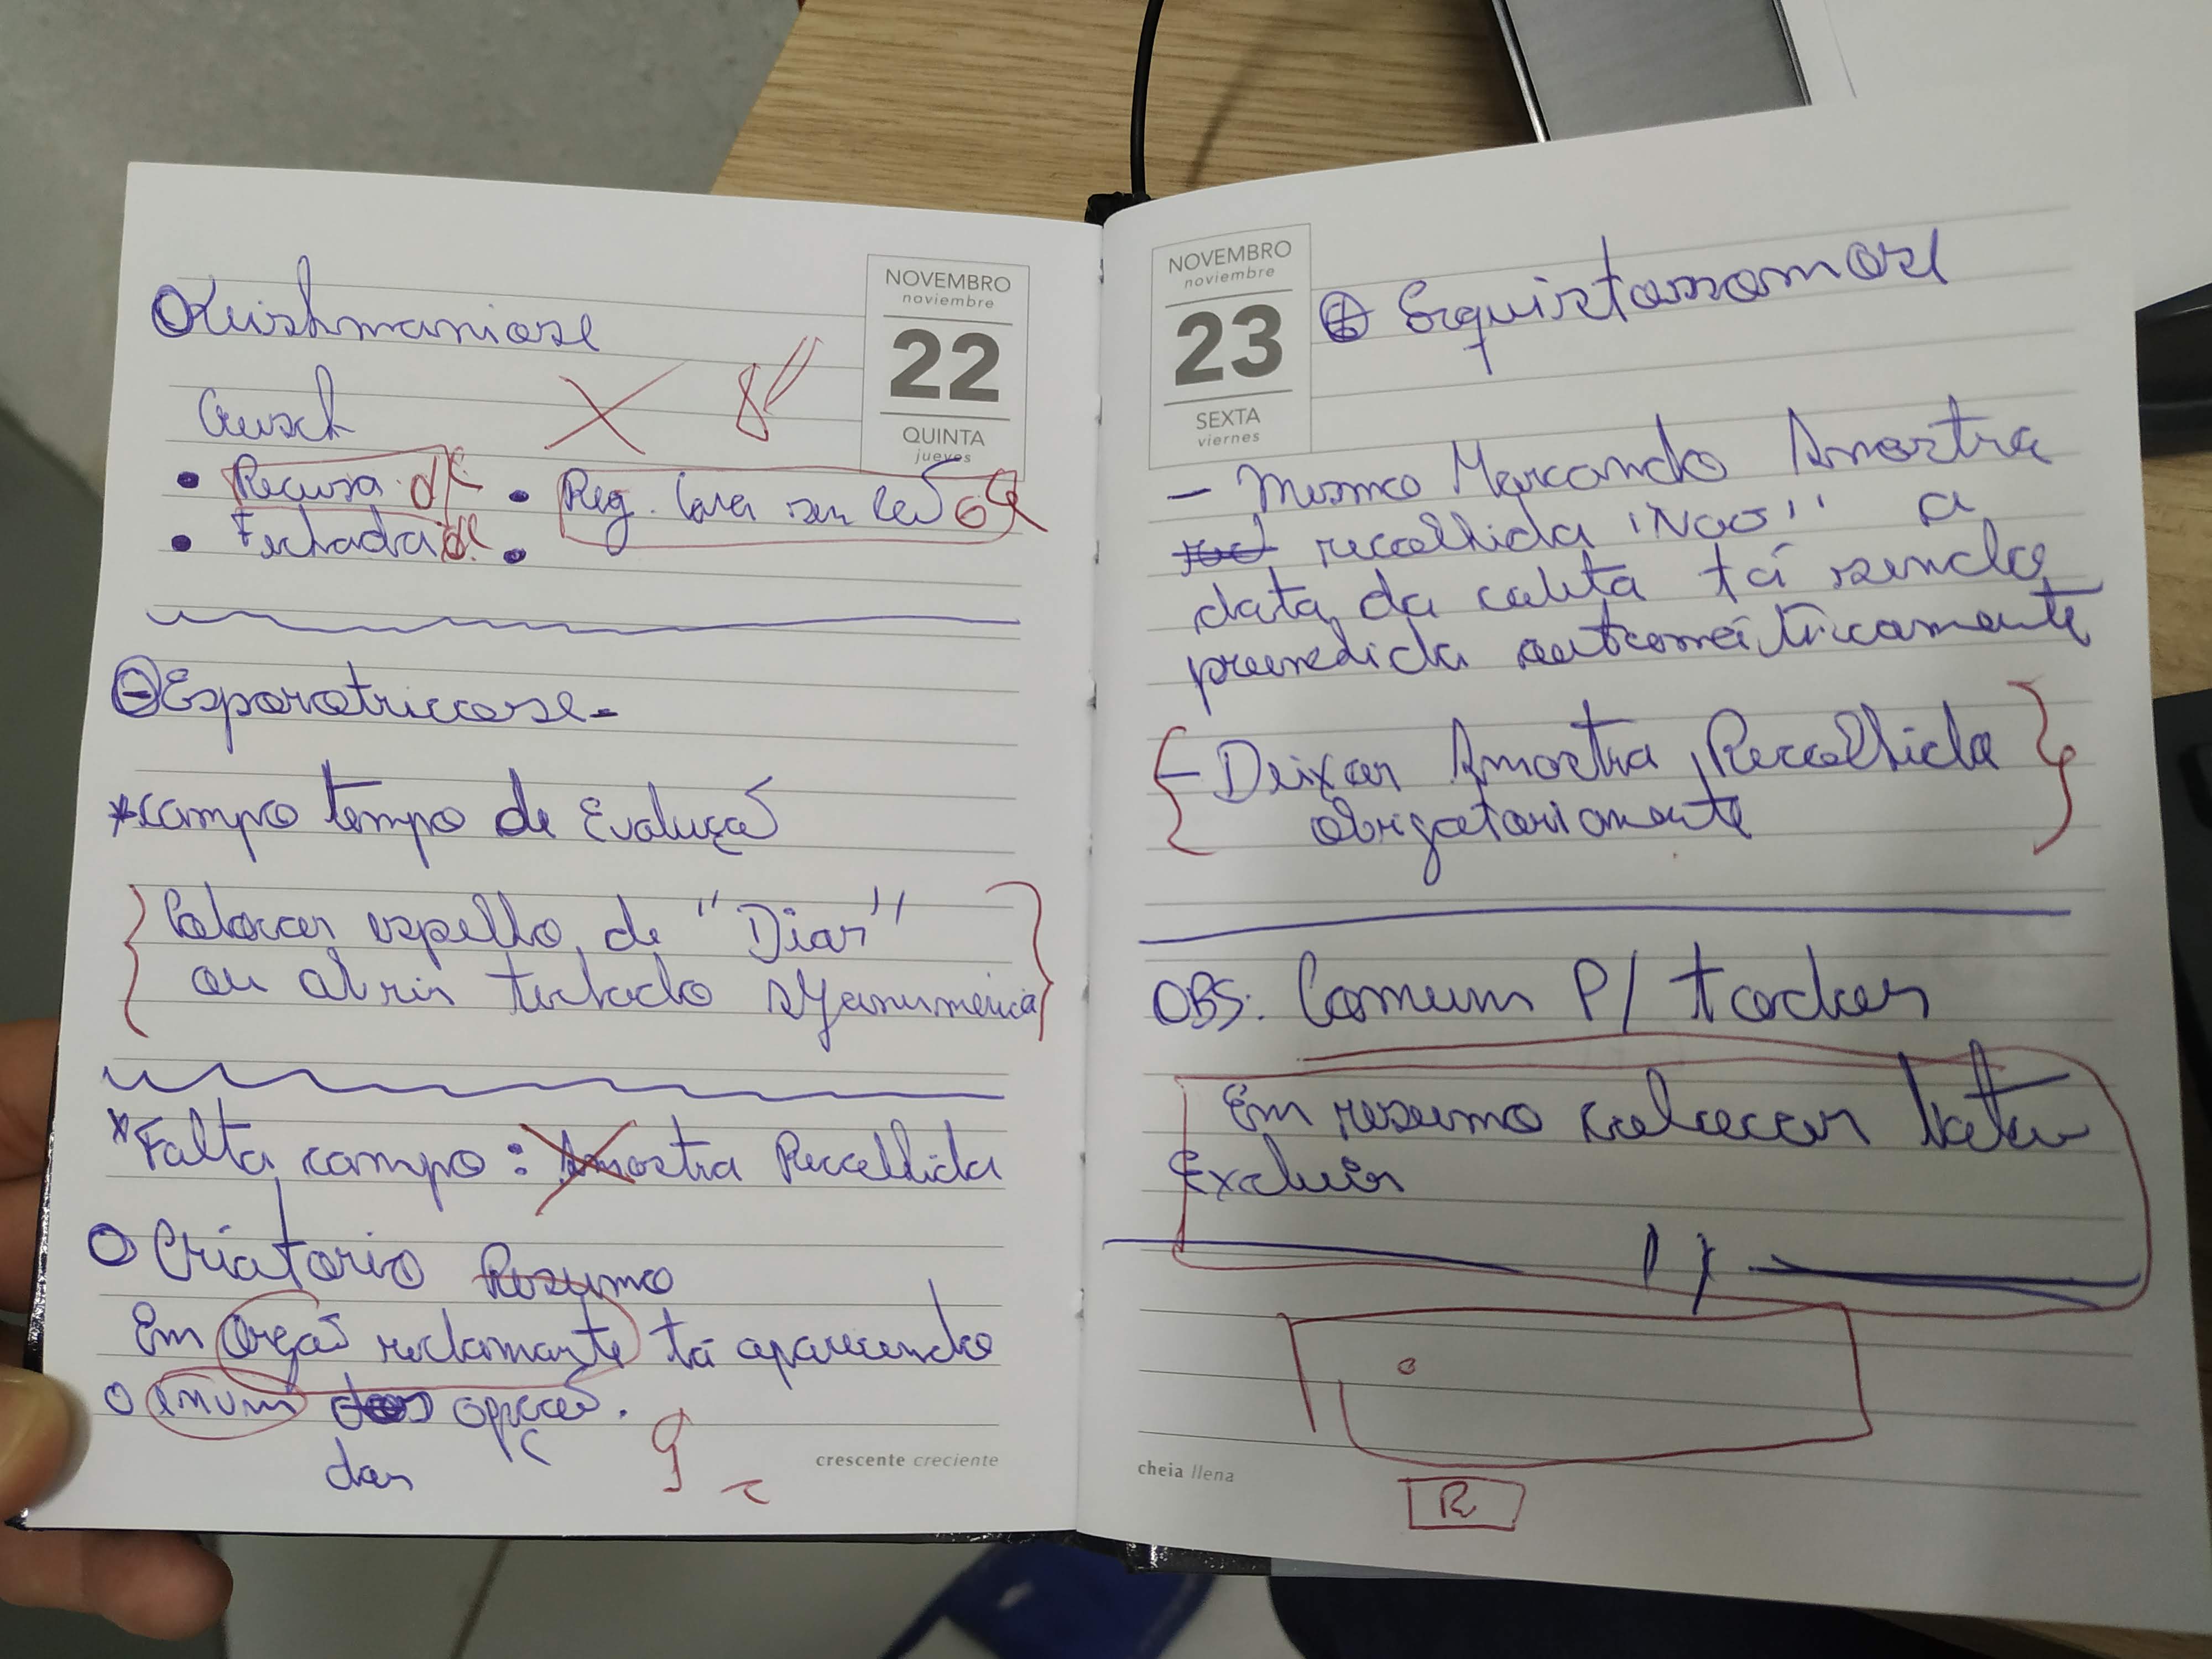 Leishmaniose
NOVEMBRO
noviembre
22
QUINTA
jueves
Crush
• Recusa. ok
• Reg. casa sem cão ok
• Fechada ok
•
Esporotricose-
*campo tempo de Evoluçaõ
Colocar espelho de "Dias"
ou abrir teclado
*Falta campo: Amostra Recolhida
Criatorio Resumo
Em orgaõ reclamante tá aparecendo
o enum dos opçoẽs.
das
crescente creciente
NOVEMBRO
noviembre
23
SEXTA
viernes
Esquistossomose
- Mesmo Marcando Amostra
recolhida "Não" a
data da coleta tá sendo
preenchida automáticamente
- Deixar Amostra Recolhida
obrigatoriamente
OBS: Comum P/ todos
Em resumo colocar botão
Excluir
cheia llena
R